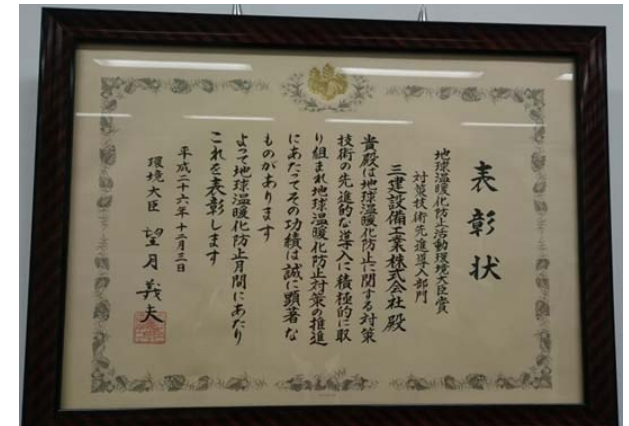 表彰状
地球温暖化防止活動環境大臣賞
対策技術先進導入部門
三建設備工業株式会社殿
貴殿は地球温暖化防止に関する対策
技術の先進的な導入に積極的に取
り組まれ地球温暖化防止対策の推進
にあたってその功績は誠に顕著な
ものがあります
よって地球温暖化防止月間にあたり
これを表彰します
平成二十六年十二月三日
環境大臣 望月義夫